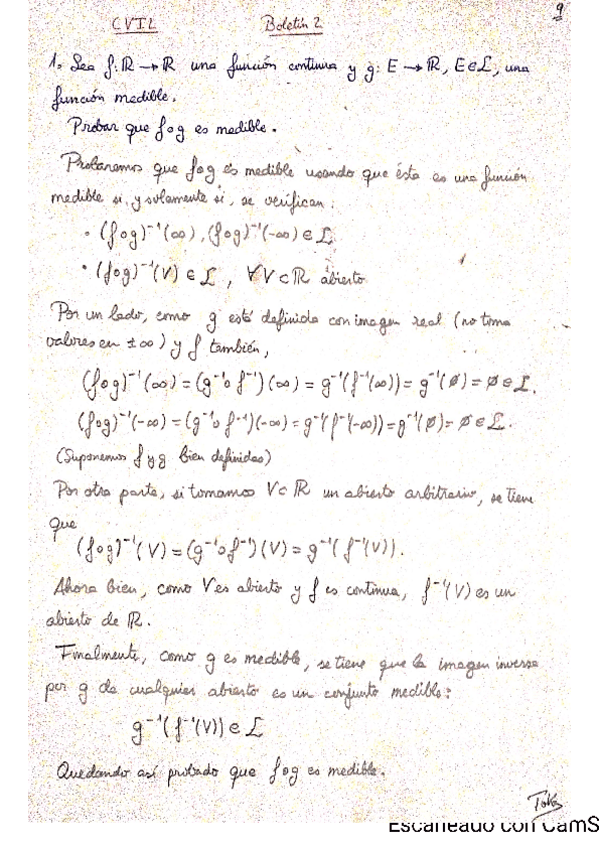 9
CVIL Boletín 2
1. Sea f: ℝ → ℝ una función continua y g: E → ℝ, E∈ℒ, una
función medible.
Probar que f∘g es medible.
Probaremos que f∘g es medible usando que ésta es una función
medible si, y solamente si, se verifican:
• (f∘g)⁻¹(∞), (f∘g)⁻¹(-∞) ∈ ℒ
• (f∘g)⁻¹(V) ∈ ℒ, ∀V⊂ℝ abierto
Por un lado, como g está definida con imagen real (no toma
valores en ±∞) y f también,
(f∘g)⁻¹(∞) = (g⁻¹∘f⁻¹)(∞) = g⁻¹(f⁻¹(∞)) = g⁻¹(∅) = ∅ ∈ ℒ.
(f∘g)⁻¹(-∞) = (g⁻¹∘f⁻¹)(-∞) = g⁻¹(f⁻¹(-∞)) = g⁻¹(∅) = ∅ ∈ ℒ.
(Suponemos f y g bien definidas)
Por otra parte, si tomamos V⊂ℝ un abierto arbitrario, se tiene
que
(f∘g)⁻¹(V) = (g⁻¹∘f⁻¹)(V) = g⁻¹(f⁻¹(V)).
Ahora bien, como V es abierto y f es continua, f⁻¹(V) es un
abierto de ℝ.
Finalmente, como g es medible, se tiene que la imagen inversa
por g de cualquier abierto es un conjunto medible:
g⁻¹(f⁻¹(V)) ∈ ℒ
Quedando así probado que f∘g es medible.
Escaneado con CamS